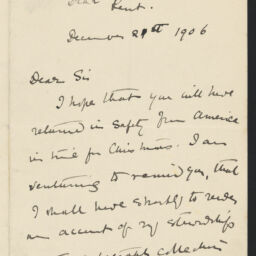 Kent.
December 21st 1906
Dear Sir
I hope that you will have
returned in safety from America
in time for Christmas. I am
venturing to remind you, that
I shall have shortly to render
an account of my stewardship
collection